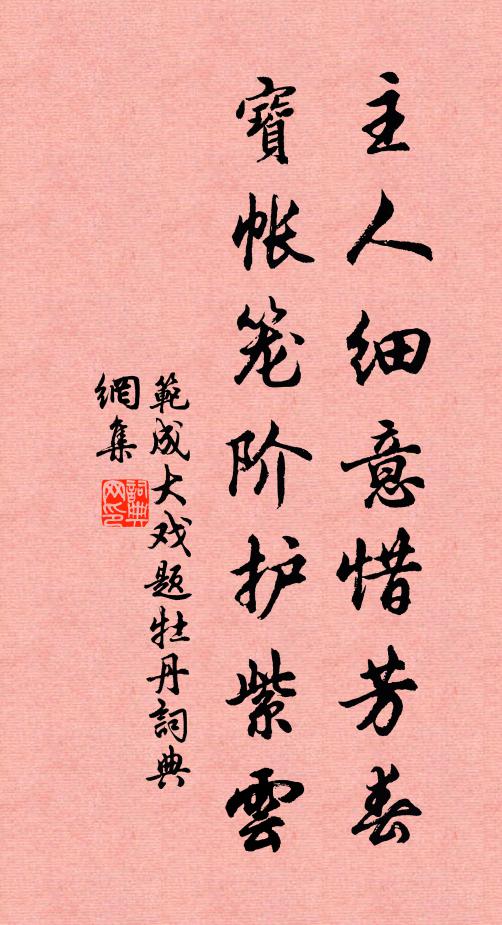 主人细意惜芳春
寶帐笼阶护紫雲
範成大戏题牡丹詞典
網集
詞典
网印